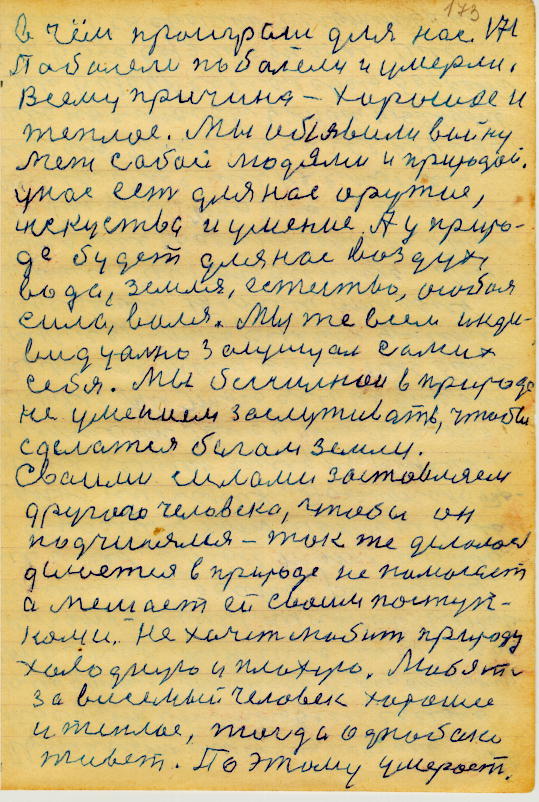 173
в чём проиграли для нас. 171
Поболели поболели и умерли.
Всему причина – хорошое и
теплое. Мы обявили войну
меж сабой людями и природой.
унас ест для нас оружие,
искуства и умение. А у приро-
де будет для нас воздух,
вода, земля, естество, особая
сила, воля. Мы же всем инди-
видуално защищая самих
себя. Мы в природе
не умением заслуживать, чтобы
сделатся богам земли.
Своими силами заставляем
другого человека, чтобы он
подчинялся – так же делает
в природе не помогает
а мешает ей своим поступ-
ками. Не хочет любит природу
холодную и плохую. Любят
человек хорошее
и теплое, тогда однобоко
живет. Поэтому умерает.